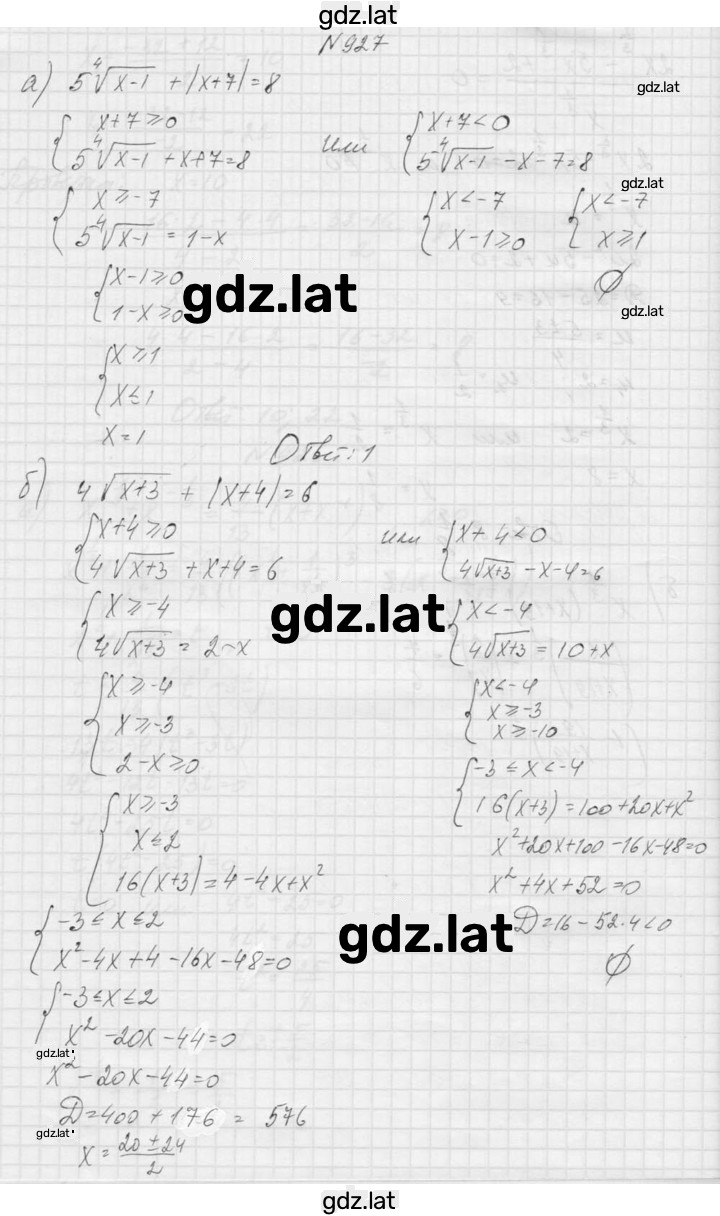 gdz.lat
N 927
а) 5∜(x-1) + |x+7| = 8
gdz.lat
{ x+7≥0
5∜(x-1) + x+7=8
или
{ x+7<0
5∜(x-1) - x-7=8
gdz.lat
{ x≥-7
5∜(x-1) = 1-x
{ x<-7
x-1≥0
{ x<-7
x≥1
∅
{ x-1≥0
1-x≥0
gdz.lat
gdz.lat
{ x≥1
x≤1
x=1
Ответ: 1
б) 4√(x+3) + |x+4| = 6
{ x+4≥0
4√(x+3) + x+4=6
или
{ x+4<0
4√(x+3) - x-4=6
gdz.lat
{ x≥-4
4√(x+3) = 2-x
{ x<-4
4√(x+3) = 10+x
{ x≥-4
x≥-3
2-x≥0
{ x<-4
x≥-3
x≥-10
{ x≥-3
x≤2
16(x+3)=4-4x+x²
{ -3≤x<-4
16(x+3)=100+20x+x²
x²+20x+100-16x-48=0
x²+4x+52=0
D=16-52·4<0
∅
{ -3≤x≤2
x²-4x+4-16x-48=0
gdz.lat
{ -3≤x≤2
x²-20x-44=0
gdz.lat
x²-20x-44=0
D=400+176 = 576
gdz.lat
x = (20±24)/2
gdz.lat